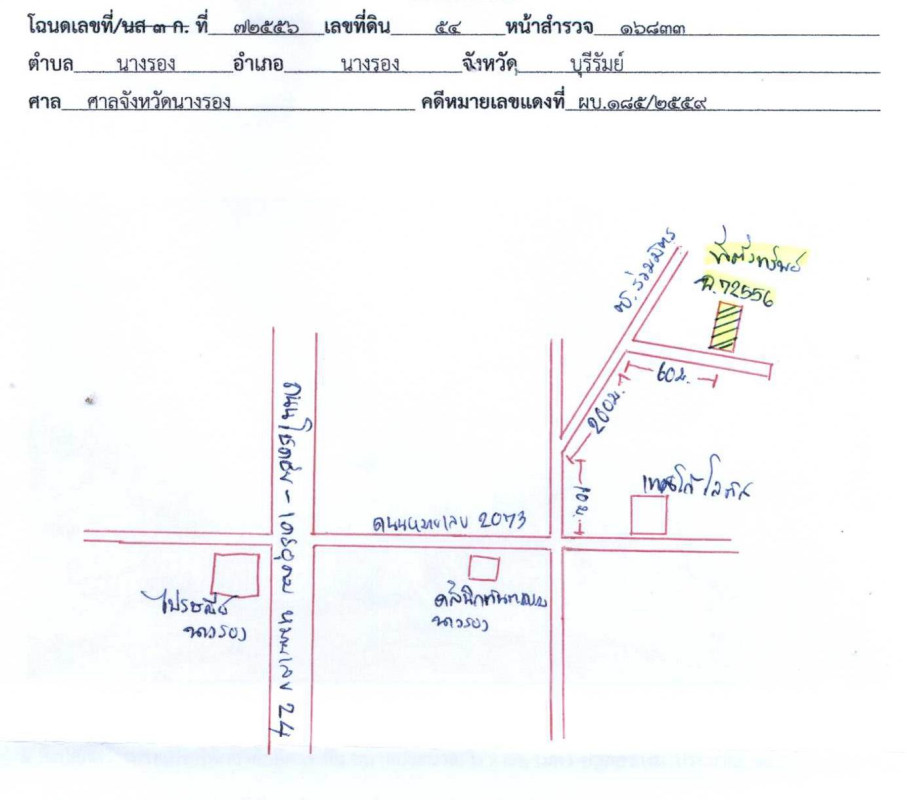 โฉนดเลขที่/นส ๓ ก. ที่ ๗๒๕๕๖ เลขที่ดิน ๕๔ หน้าสำรวจ ๑๖๘๓๓
ตำบล นางรอง อำเภอ นางรอง จังหวัด บุรีรัมย์
ศาล ศาลจังหวัดนางรอง คดีหมายเลขแดงที่ ผบ.๑๘๕/๒๕๕๙
ซ.ร่วมมิตร
ที่ตั้งทรัพย์
ฉ.72556
60ม.
200ม.
ถนนโชคชัย - เดชอุดม หมายเลข 24
เทสโก้ โลตัส
ถนนหมายเลข 2073
ไปรษณีย์
นางรอง
คลินิก
นางรอง